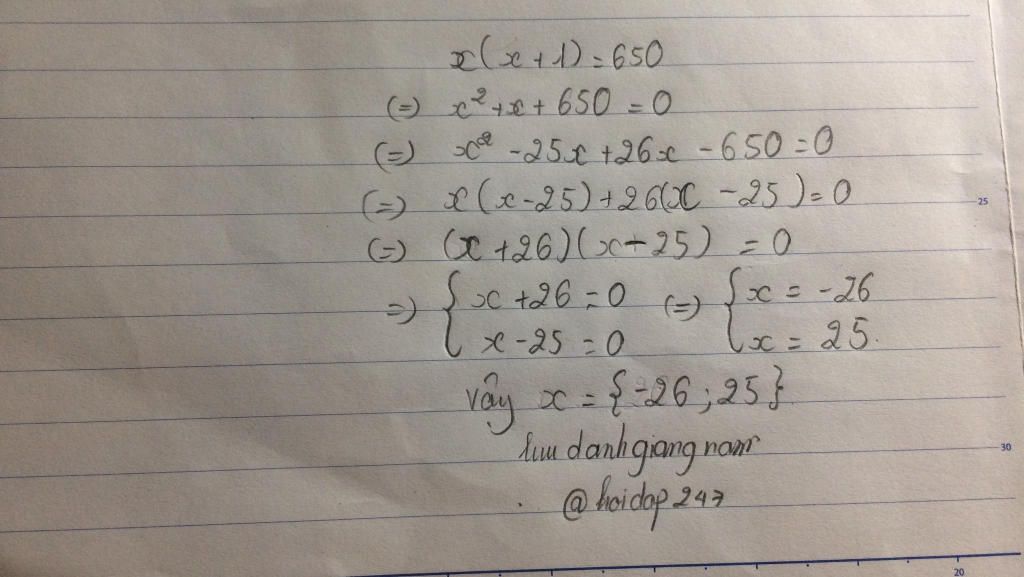 x(x+1)=650
(=) x²+x+650=0
(=) x²-25x+26x-650=0
(=) x(x-25)+26(x-25)=0
(=) (x+26)(x-25)=0
=) { x+26=0 (=) { x=-26
x-25=0 x=25.
vây x={-26;25}
lưu danh giang nam
@hoidap247
25
30
20